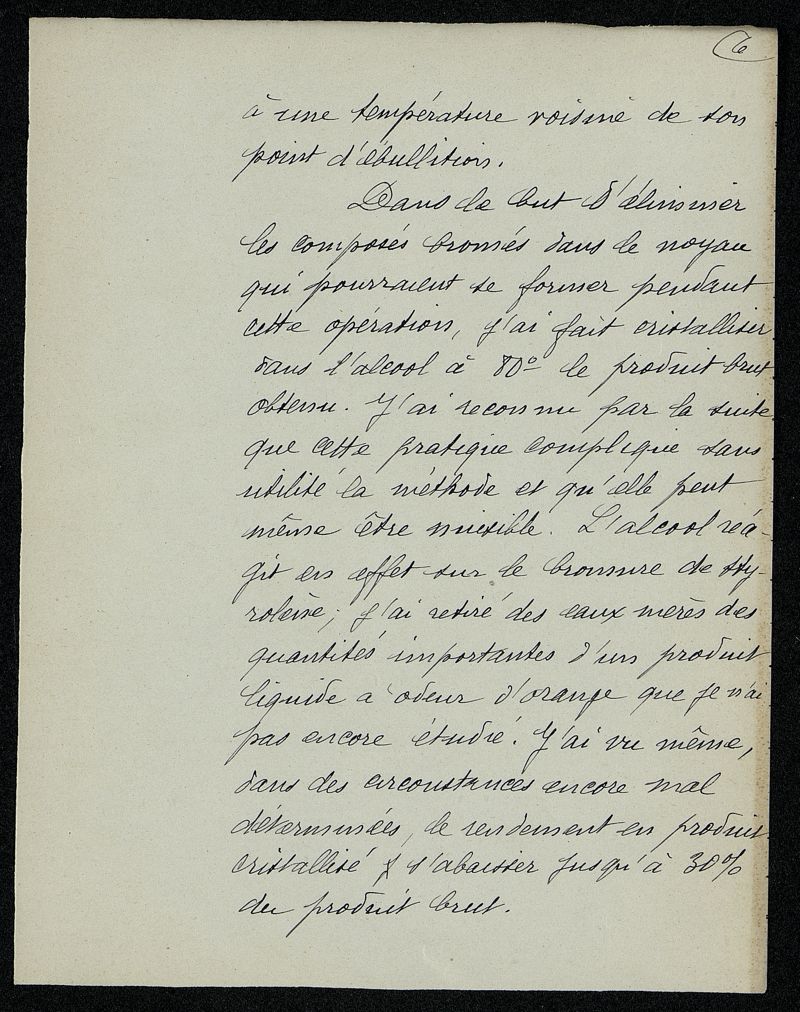 6
à une température voisine de son
point d'ébullition.
Dans le but d'éliminer
les composés bromés dans le noyau
qui pourraient se former pendant
cette opération, j'ai fait cristalliser
dans l'alcool à 80° le produit brut
obtenu. J'ai reconnu par la suite
que cette pratique complique sans
utilité la méthode et qu'elle peut
même être nuisible. L'alcool réa-
git en effet sur le bromure de sty-
rolène; j'ai retiré des eaux mères des
quantités importantes d'un produit
liquide à odeur d'orange que je n'ai
pas encore étudié. J'ai vu même,
dans des circonstances encore mal
déterminées, le rendement en produit
cristallisé s'abaisser jusqu'à 30%
du produit brut.